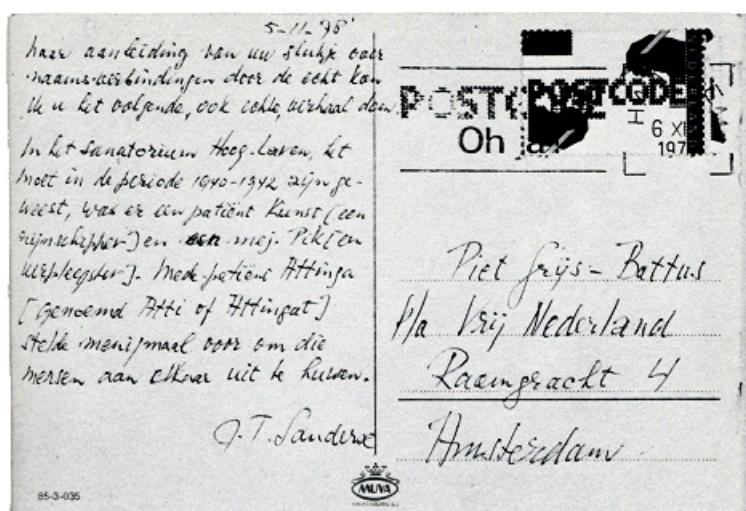 5-11-'78
Naar aanleiding van uw stukje over
naamsverbindingen door de echt kan
ik u het volgende, ook echte, verhaal doen.
In het sanatorium Hoog-Laren, het
moet in de periode 1940-1942 zijn ge-
weest, was er een patiënt Kunst [een
rijnschipper] en mej. Pik [en
verpleegster]. Mede-patiënt Attinga
[genoemd Atti of Attingat]
stelde menigmaal voor om die
mensen aan elkaar uit te huwen.
J.T. Sanders
POSTCODE
POSTCODE
Oh ja
6 XI
197
Piet Grijs - Battus
p/a Vrij Nederland
Raamgracht 4
Amsterdam
MUVA
85-3-035